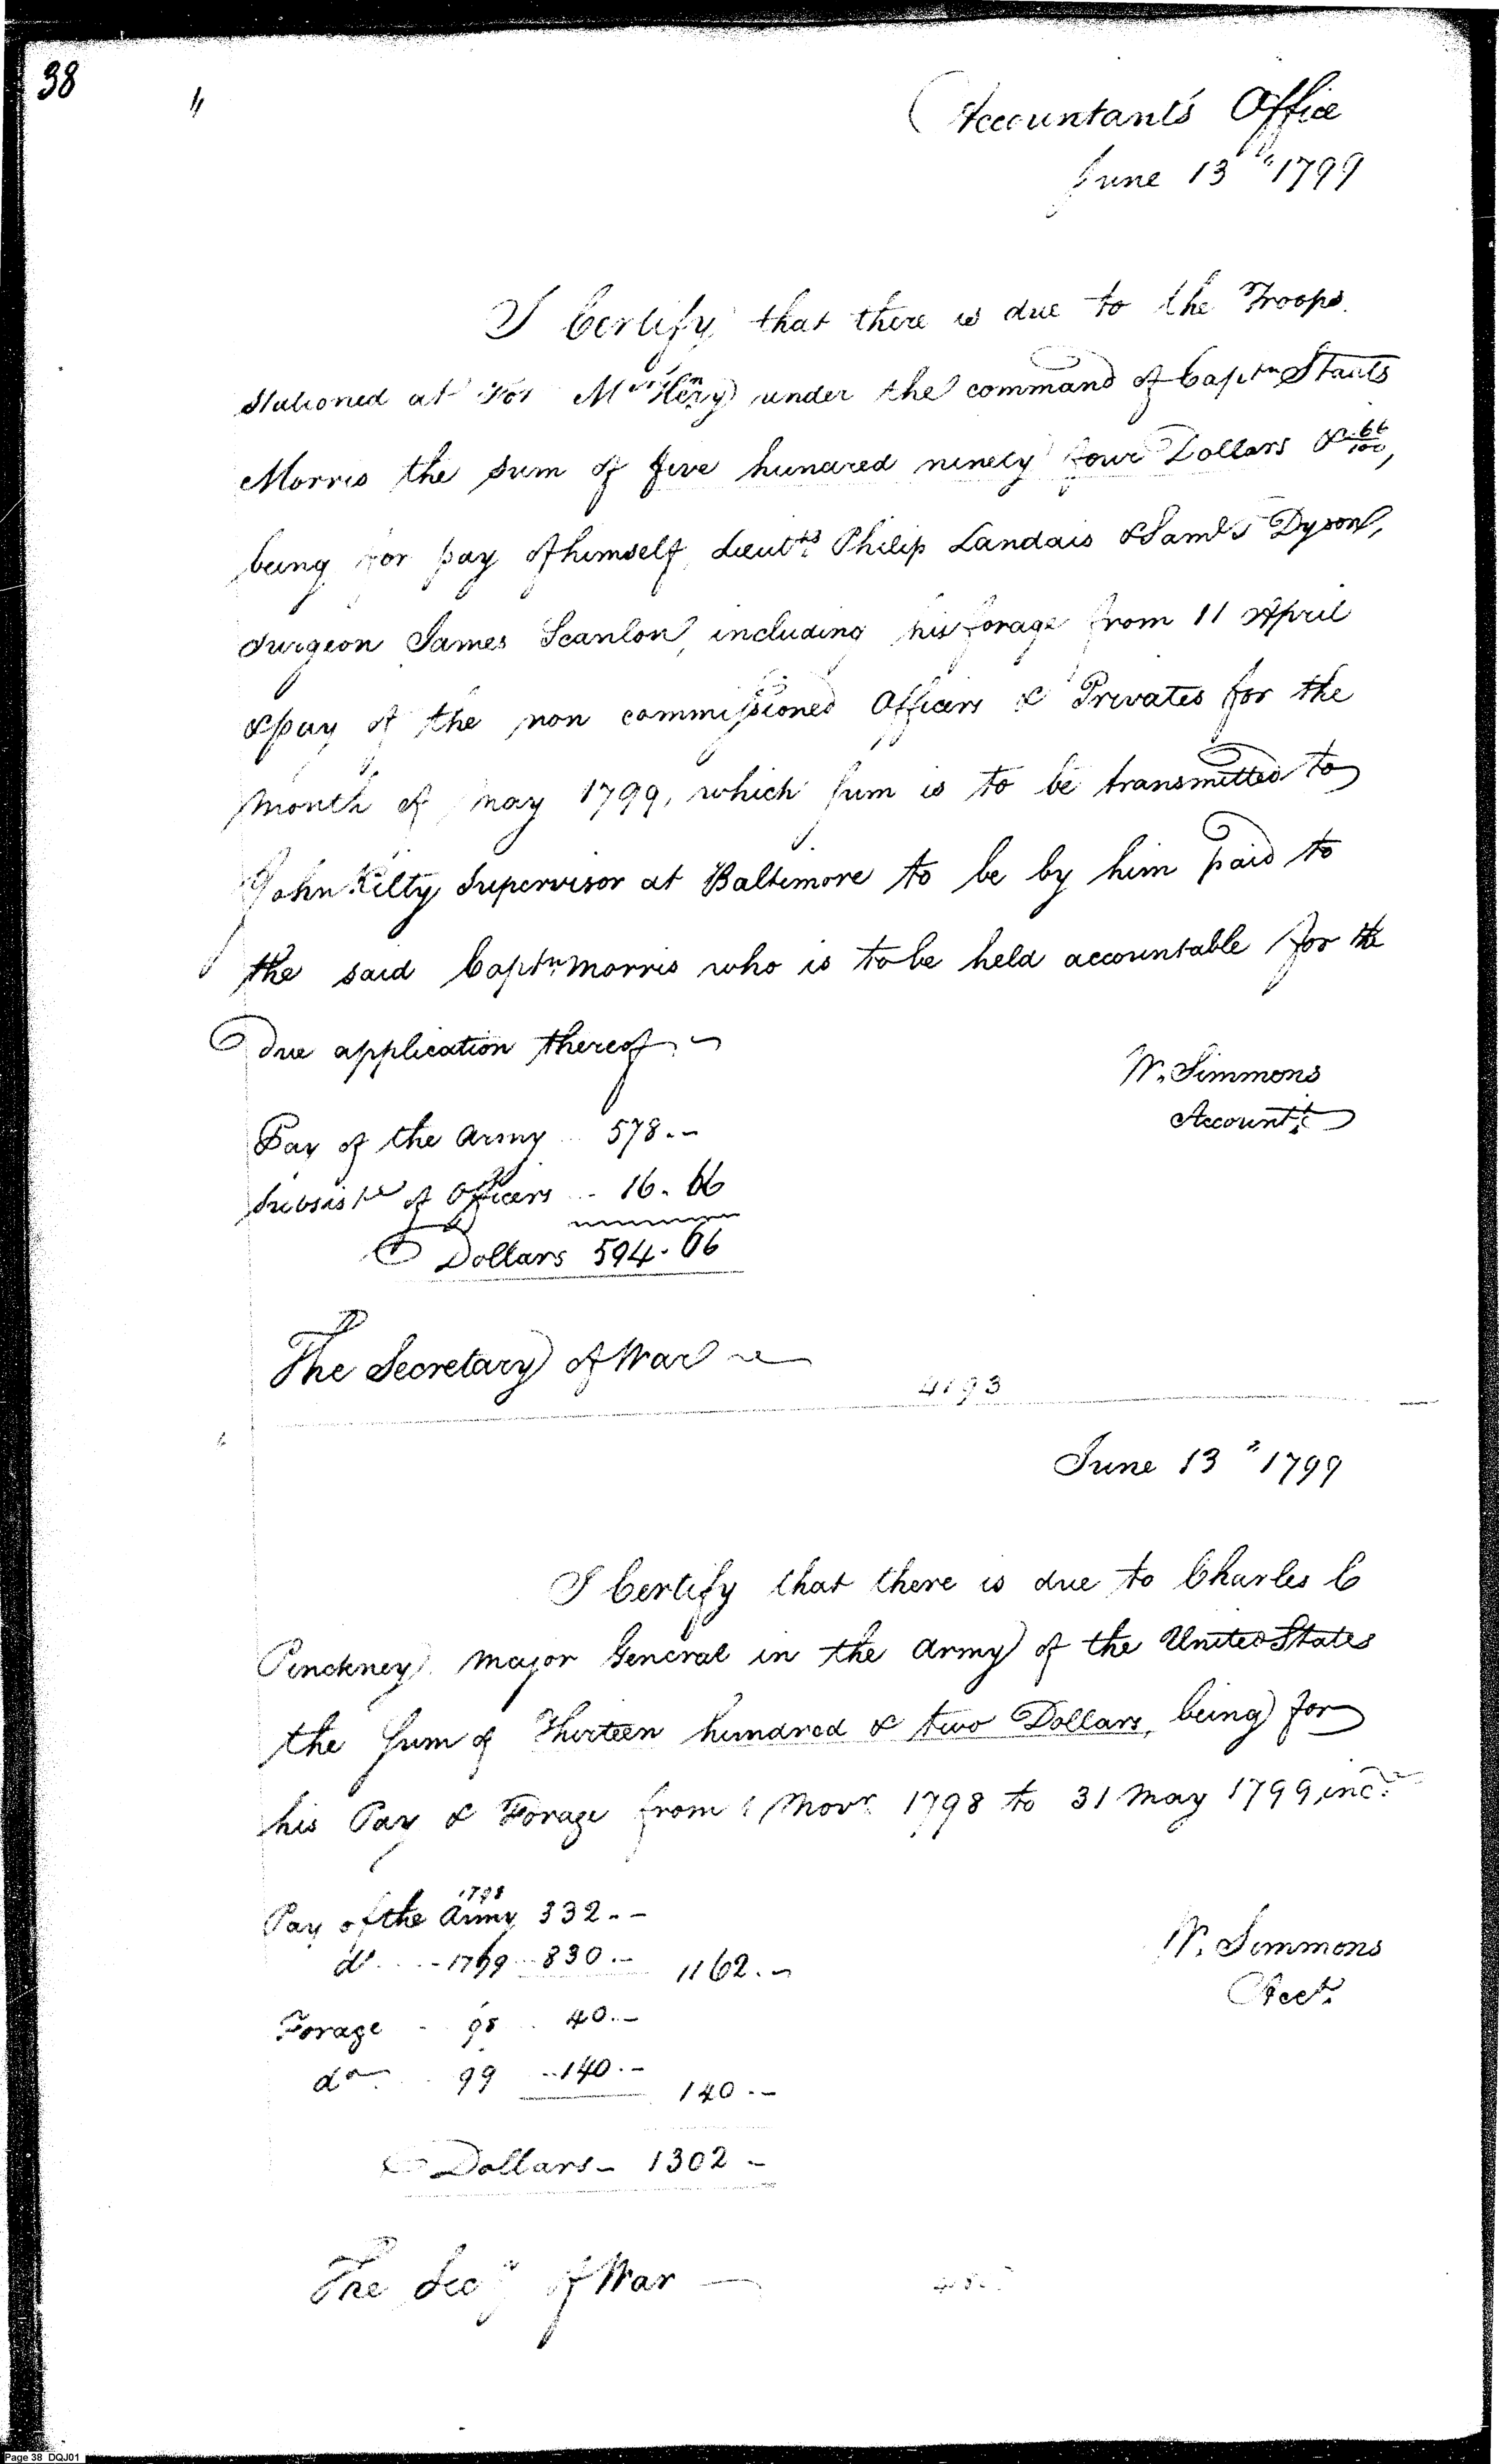 38
"
Accountant's Office
June 13th 1799
I Certify that there is due to the Troops
stationed at For McHenry under the command of Captn Staats
Morris the sum of five hundred ninety four Dollars & 66/100,
being for pay of himself, Lieutts Philip Landais & Saml T Dyson,
Surgeon James Scanlon, including his forage from 11 April
& pay of the non commissioned Officers & Privates for the
month of May 1799, which sum is to be transmitted to
John Kilty Supervisor at Baltimore to be by him paid to
the said Captn Morris who is to be held accountable for the
due application thereof
W. Simmons
Accountt
Pay of the Army 578.-
Subsistce of Officers 16.66
Dollars 594.66
The Secretary of War
4193
June 13" 1799
I Certify that there is due to Charles C
Pinckney Major General in the Army of the United States
the sum of Thirteen hundred & two Dollars, being for
his Pay & Forage from 1 Novr 1798 to 31 May 1799, inc.
Pay of the Army 1798 332.-
do 1799 830.- 1162.-
W. Simmons
Acct.
Forage 98 40.-
do 99 140.- 140.-
Dollars - 1302 -
The Secy of War
Page 38 DQJ01